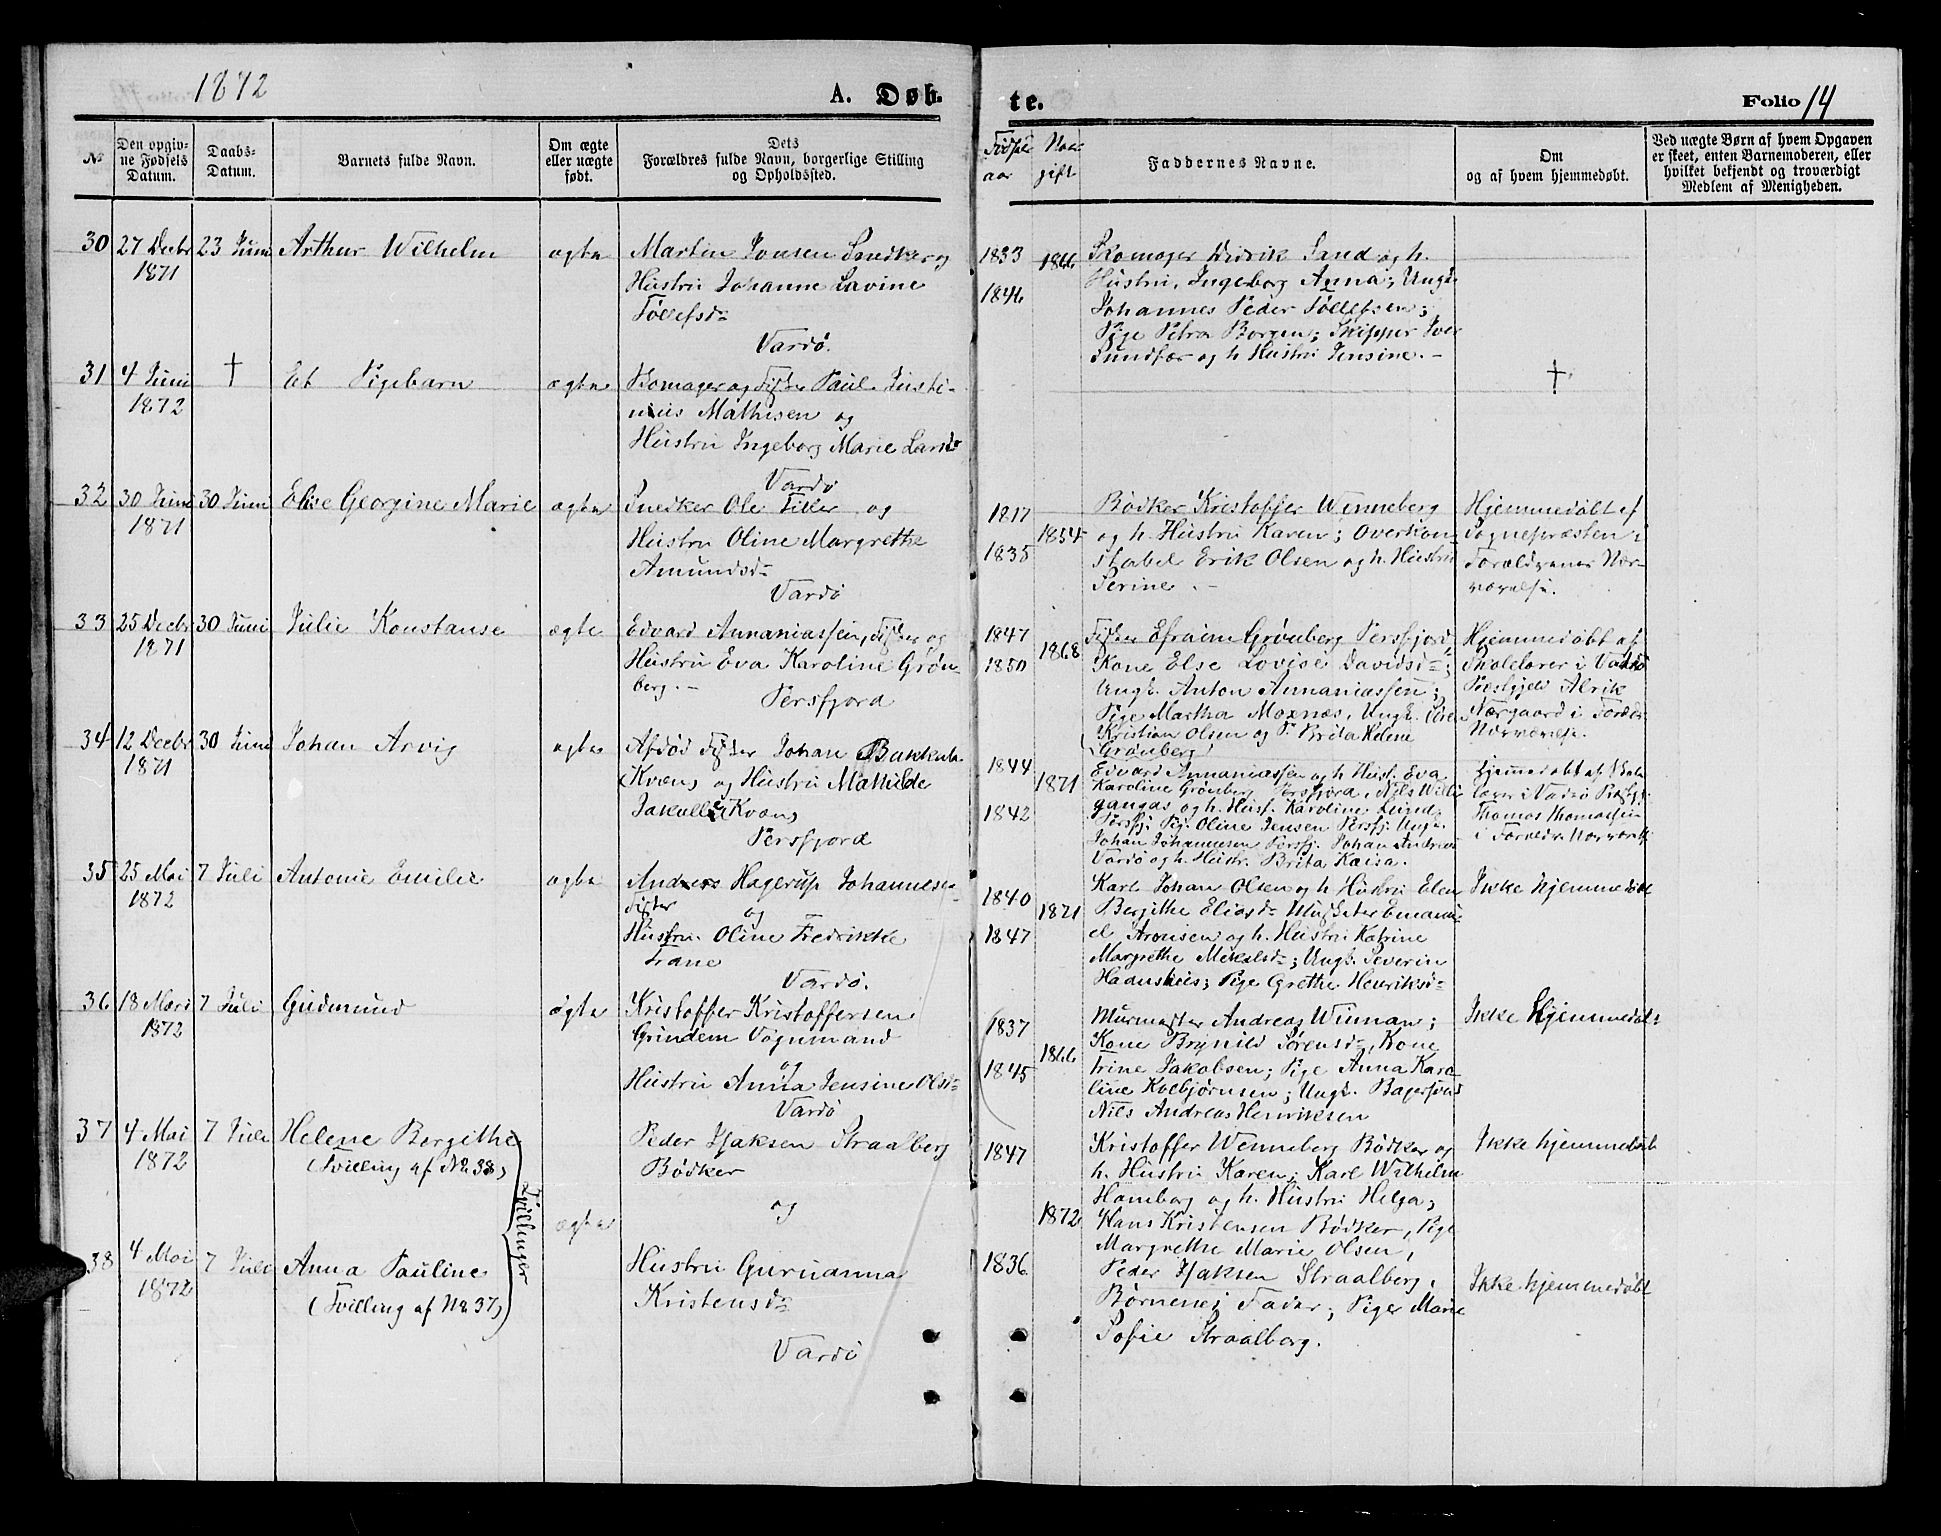 1872
A. Døb-
te.
Folio 14
No
Den opgiv-
ne Fødsels
Datum.
Daabs-
Datum.
Barnets fulde Navn.
Om ægte
eller uægte
født.
Dets
Forældres fulde Navn, borgerlige Stilling
og Opholdssted.
Fødsels
aar
gift
Faddernes Navne.
Om
og af hvem hjemmedøbt.
Ved uægte Børn af hvem Opgaven
er skeet, enten Barnemoderen, eller
hvilket bekjendt og troværdigt
Medlem af Menigheden.
30
27 Decbr
1871
23 Juni
Arthur Wilhelm
ægte
Martin Jonsen Snedker og
Hustru Johanne Lavine
Tollefsd
Vardø.
1833
1846
1866
Skomager Didrik Sand og h.
Hustru, Ingeborg Anna; Ungk.
Johannes Peder Tollefsen;
Pige Petra Borgen; Skipper Iver
Sundfær og h. Hustru Jensine. -
31
4 Juni
1872
†
Et Pigebarn
ægte
Bomager og Fisker Paul Justi-
nius Mathisen og
Hustru Ingeborg Marie Larsd
Vardø
†
32
30 Juni
1871
30 Juni
Elise Georgine Marie
ægte
Snedker Ole Tiller og
Hustru Oline Margrethe
Amundsd
Vardø
1817
1835
1854
Bødker Kristoffer Wenneberg
og h. Hustru Karen; Overkon-
stabel Erik Olsen og h. Hustru
Serine. -
Hjemmedøbt af
Sognepræsten i
Forældrenes Nær-
værelse.
33
25 Decbr
1871
30 Juni
Julie Konstanse
ægte
Edvard Annaniassen, Fisker og
Hustru Eva Karoline Grøn-
berg. -
Persfjord
1847
1850
1868
Fisker Efraim Grønberg Persfjord,
Kone Else Lovise Davidsd;
Ungk. Anton Annaniassen;
Pige Martha Moxnæs, Ungk.
Kristian Olsen og P. Brita Helene
Grønberg
Hjemmedøbt af
Skolelærer i Vadsø
Præstgjeld Alrik
Nærgaard i Foræld.
Nærværelse.
34
12 Decbr
1871
30 Juni
Johan Arvig
ægte
Afdød Fisker Johan
(Kvæn) og Hustru Mathilde
(Kvæn)
Persfjord
1844
1842
1871
Edvard Annaniassen og h. Hust. Eva
Karoline Grønberg Persfjord, Nils Willi
gangas og h. Hust. Karoline Lund,
Persfj. Pig. Oline Jensen Persfj. Ungk.
Johan Johannesen Persfj. Johan Andreas
Vardø og h. Hustr. Brita Kaisa.
Hjemmedøbt af Skole
lærer i Vadsø Præstgj.
Thomas Thomassen
i Forældr. Nærværelse
35
25 Mai
1872
7 Juli
Antonie Emilie
ægte
Andreas Hagerup Johannesen
Fisker
og
Hustru Oline Fredrikke
Trane
Vardø.
1840
1847
1871
Karl Johan Olsen og h. Hustru Elen
Bergithe Eliasd Musketer Emanu-
el Aronsen og h. Hustru Katrine
Margrethe Mikalsd; Ungk. Severin
Pige Grethe Henriksd
Ikke hjemmedøbt
36
18 Marts
1872
7 Juli
Gudmund
ægte
Kristoffer Kristoffersen
Grindem Vognmand
og
Hustru Anna Jensine Olsd
Vardø
1837
1845
1866
Murmester Andreas Winnan;
Kone Brynild Sørensd, Kone
Trine Jakobsen; Pige Anna Karo-
line Kolbjørnsen; Ungk. Bagersvend
Nils Andreas Henriksen
Ikke hjemmedøbt
37
4 Mai
1872
7 Juli
Helene Bergithe
(Tvilling af No 38)
Tvillinger
ægte
Peder Isaksen Straalberg
Bødker
og
1847
1872
Kristoffer Wenneberg Bødker og
h. Hustru Karen; Karl Wilhelm
Hamborg og h. Hustru Helga;
Hans Kristensen Bødker, Pige
Margrethe Marie Olsen,
Ikke hjemmedøbt
38
4 Mai
1872
7 Juli
Anna Pauline
(Tvilling af No 37)
Hustru Guruanna
Kristensd
Vardø
1836
Peder Isaksen Straalberg,
Børnenes Fader; Pige Marie
Sofie Straalberg.
Ikke hjemmedøbt